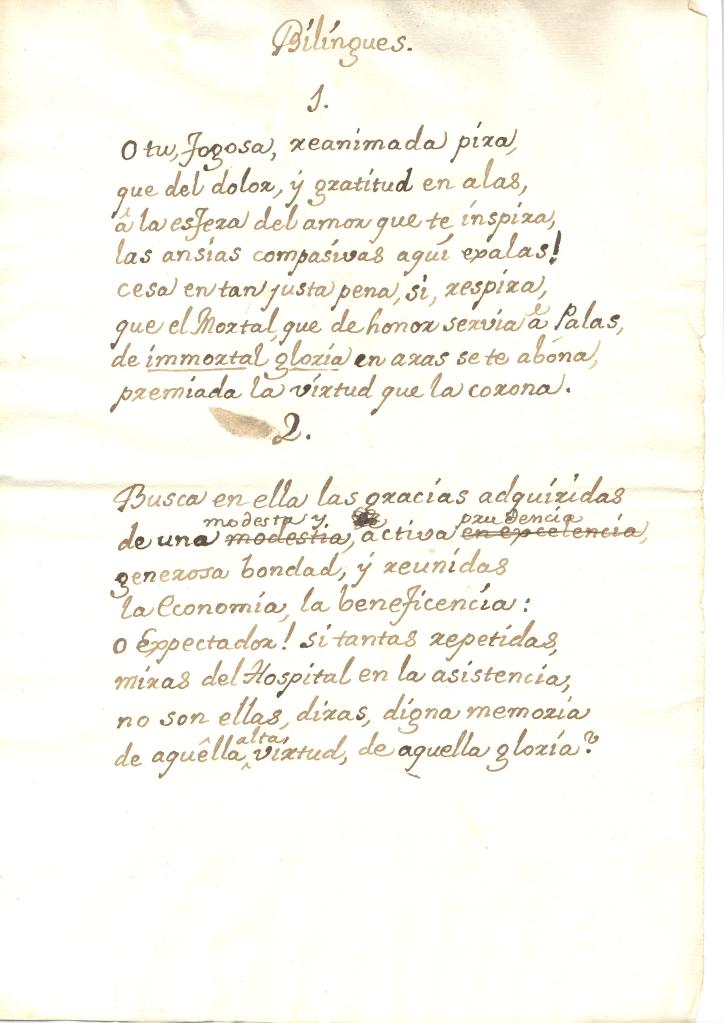 Bilingues.
1.
O tu, fogosa, reanimada pira,
que del dolor, ÿ gratitud en alas,
â la esfera del amor que te inspira,
las ansias compasivas aquí exalas!
cesa en tan justa pena, si, respira,
que el Mortal, que de honor servia â Palas,
de immortal gloria en aras se te abona,
premiada la virtud que la corona.
2.
Busca en ella las gracias adquiridas
modesta y prudencia
de una modestia, activa en excelencia,
generosa bondad, ÿ reunidas
la Economía, la beneficencia:
O Expectador! si tantas repetidas,
miras del Hospital en la asistencia,
no son ellas, diras, digna memoria
alta,
de aquêlla virtud, de aquella gloria?